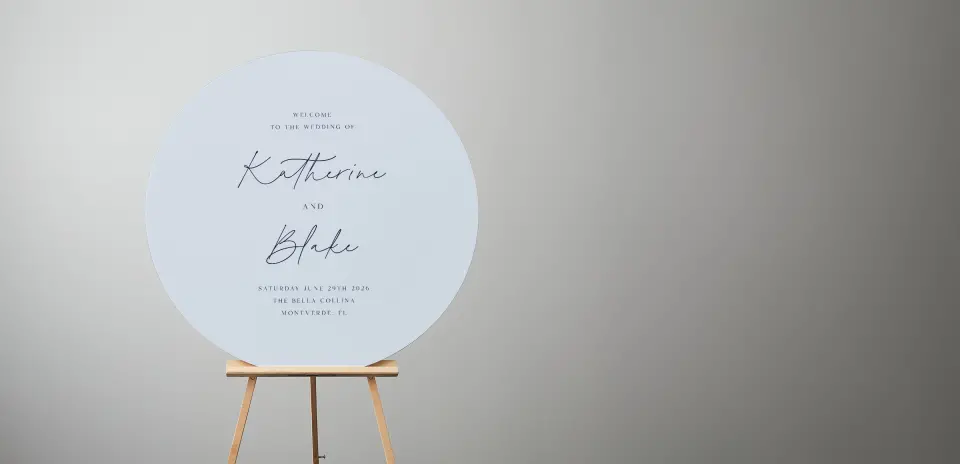 WELCOME
TO THE WEDDING OF
Katherine
AND
Blake
SATURDAY JUNE 29TH 2026
THE BELLA COLLINA
MONTVERDE, FL